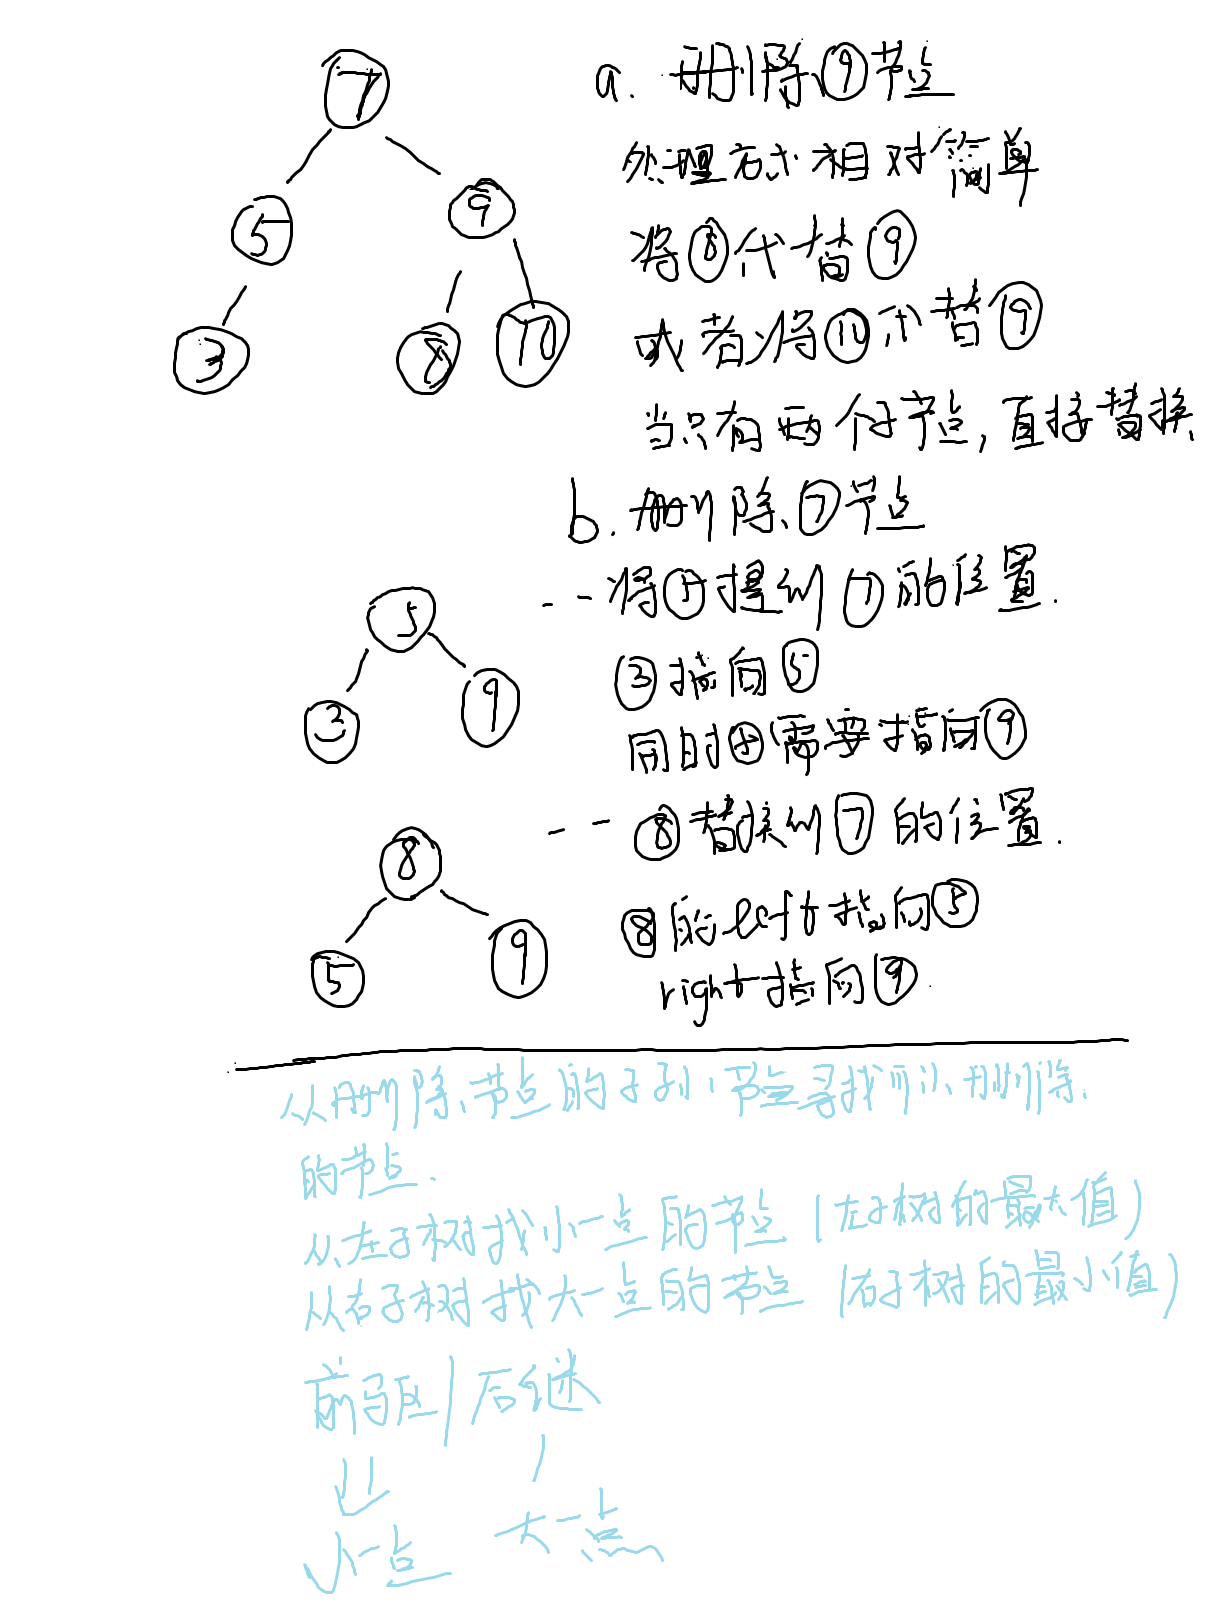 7
5 9
3 8 10
a. 删除⑨节点
处理方式相对简单
将⑧代替⑨
或者将⑩代替⑨
当只有两个子节点,直接替换
b. 删除⑦节点
-- 将⑤提到⑦的位置.
③指向⑤
同时⑤需要指向⑨
5
3 9
-- ⑧替换到⑦的位置.
⑧的left指向⑤
right指向⑨.
8
5 9
从删除节点的子孙节点寻找可以删除
的节点.
从左子树找小一点的节点(左子树的最大值)
从右子树找大一点的节点(右子树的最小值)
前驱/后继
小一点 大一点